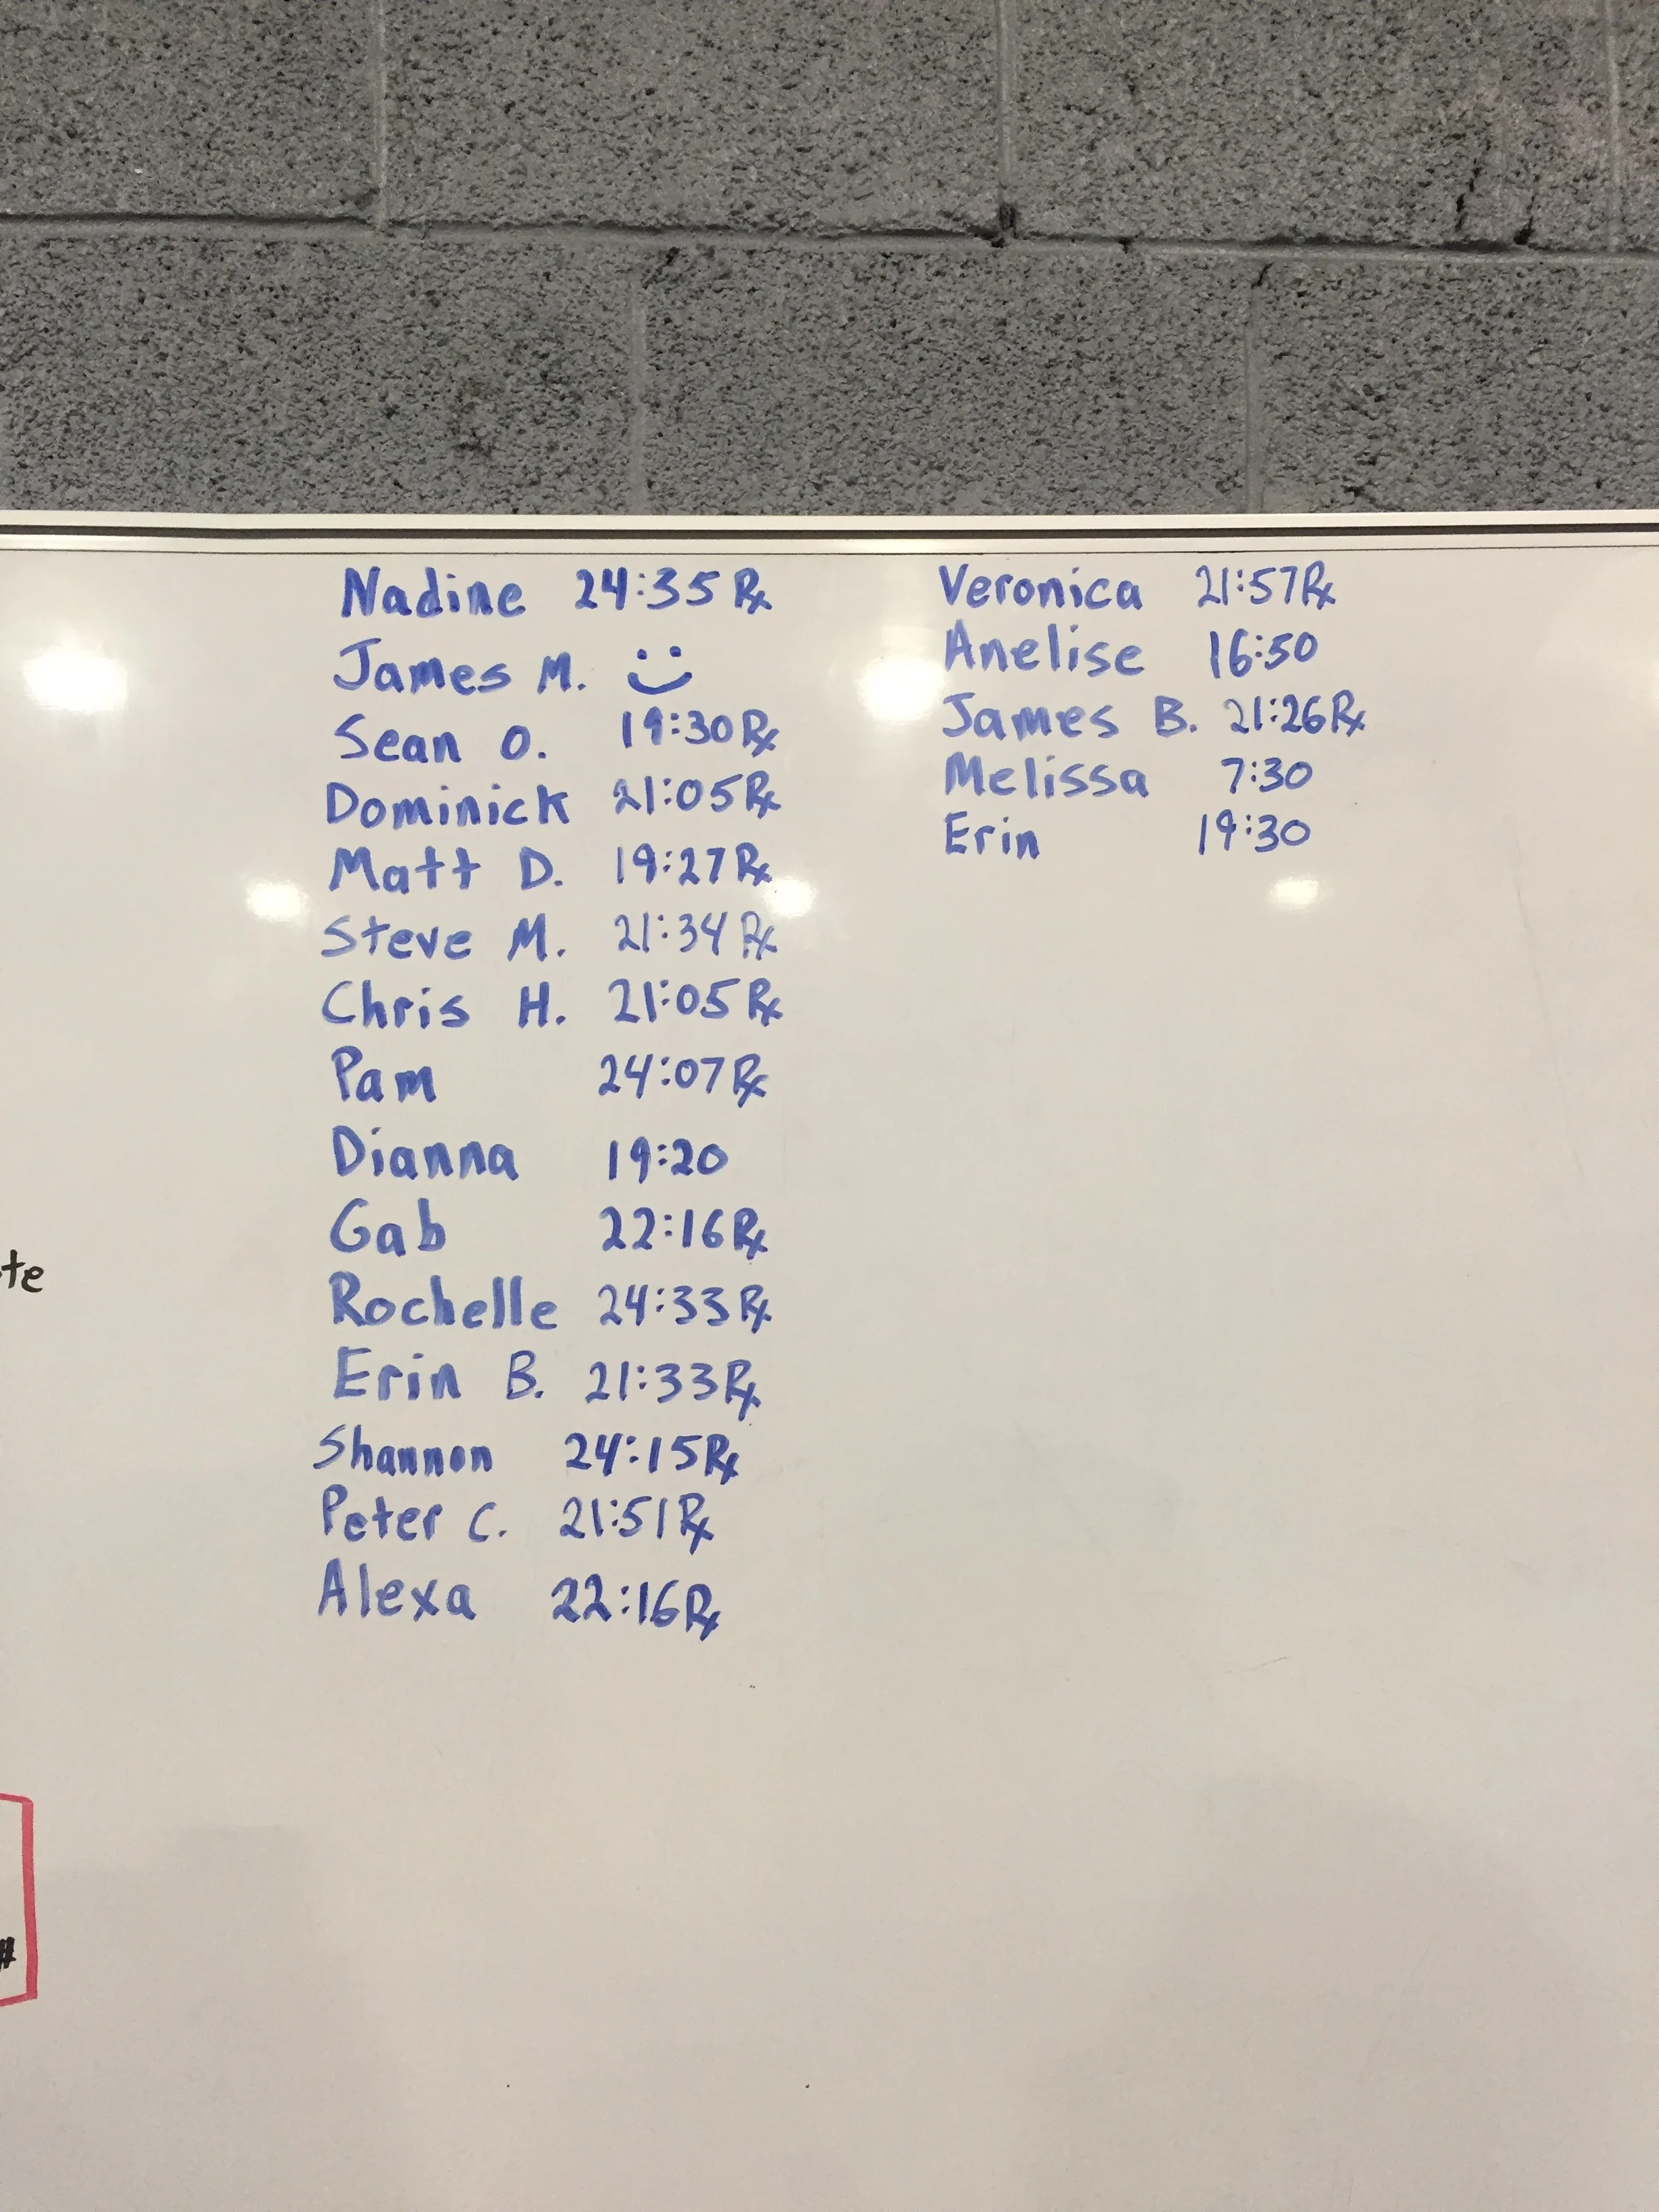 Nadine 24:35 Rx
James M. :)
Sean O. 19:30 Rx
Dominick 21:05 Rx
Matt D. 19:27 Rx
Steve M. 21:34 Rx
Chris H. 21:05 Rx
Pam 24:07 Rx
Dianna 19:20
Gab 22:16 Rx
Rochelle 24:33 Rx
Erin B. 21:33 Rx
Shannon 24:15 Rx
Peter C. 21:51 Rx
Alexa 22:16 Rx
Veronica 21:57 Rx
Anelise 16:50
James B. 21:26 Rx
Melissa 7:30
Erin 19:30
te
#